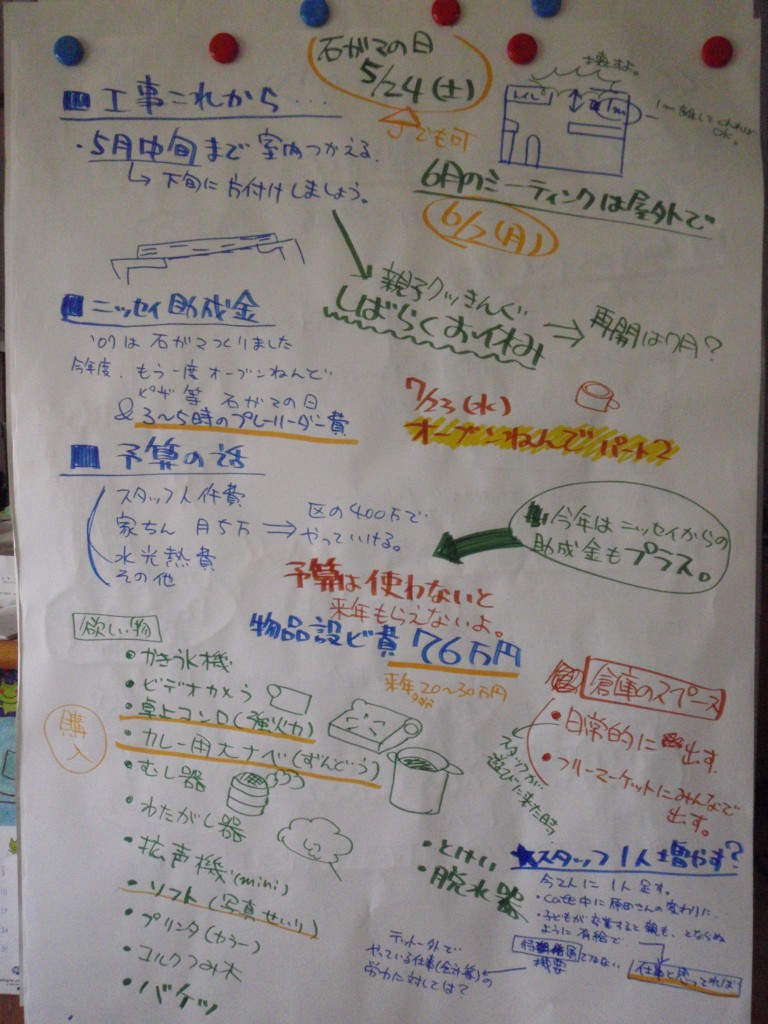 石がマの日
5/24(土)
でも可
壊すよ。
トイレ
1m
■ 工事これから…
・5月中旬まで室内つかえる。
↳下旬に片付けしましょう。
6月のミーティングは屋外で
6/2(月)
親子クッキんぐ
しばらくお休み ⇒ 再開は7月?
■ ニッセイ助成金
'07は石がマつくりました
今年度、もう一度オーブンねんど
ピザ等 石がマの日
& 3〜5時のプレーリーダー費
7/23(水)
オーブンねんどパート2
■ 予算の話
スタッフ人件費
家ちん 月5万 ⇒ 区の400万で
やっていける。
水光熱費
その他
今年はニッセイからの
助成金もプラス。
予算は使わないと
来年もらえないよ。
物品設ビ費 76万円
来年20〜30万円
欲しい物
購入
・かき氷機
・ビデオカメラ
・卓上コンロ(強火力)
・カレー用大ナベ(ずんどう)
・むし器
・わたがし器
・拡声機(mini)
・ソフト(写真せいり)
・プリンタ(カラー)
・コルクつみ木
・バケツ
・とけい
・脱水器
倉庫のスペース
・日常的に出す。
・フリーマーケットにみんなで
出す。
スタッフが
遊びに来た時
★スタッフ1人増やす?
今2人に1人足す。
・Cafe中に原田さんの変わりに
・子どもが卒業すると親も、とならぬ
ように有給で
仕事と思ってくれれば
テント外で
やっている仕事(会計等)の
労力に対しては?